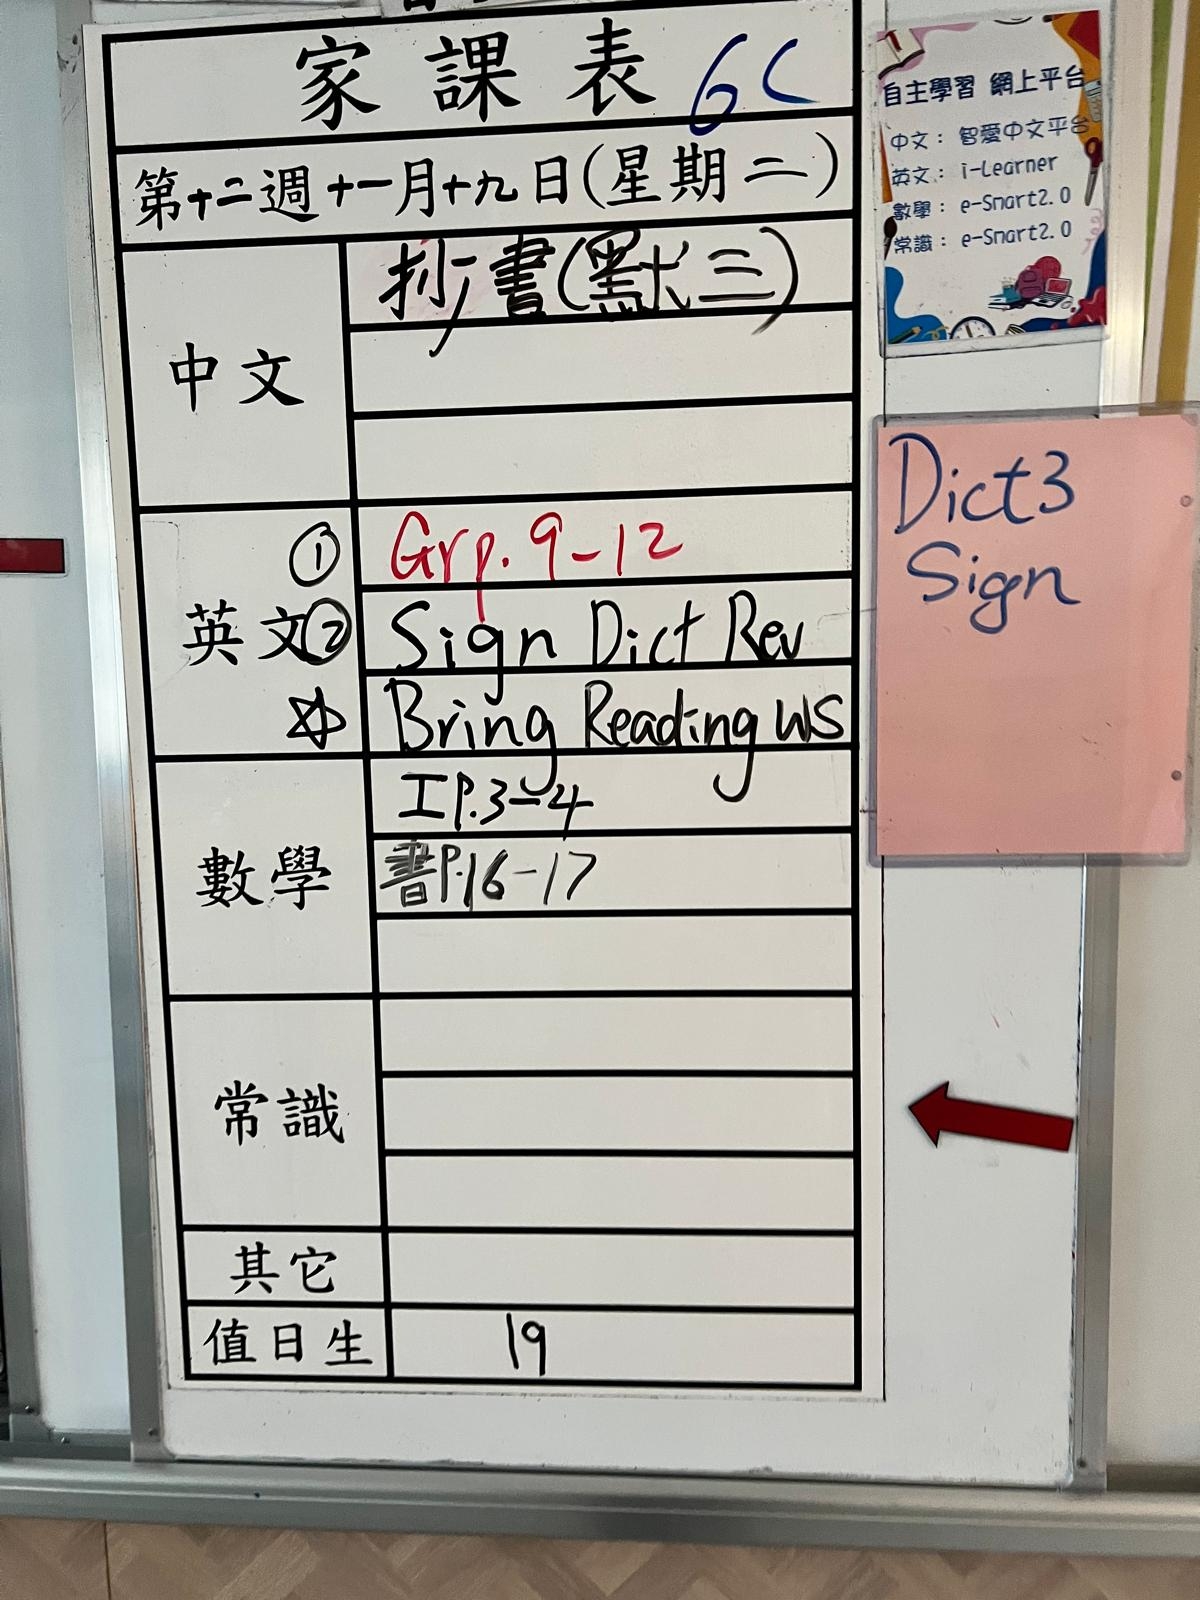 家課表 6C
第十二週 十一月十九日(星期二)
中文
抄書(默三)
英文
① Grp. 9-12
② Sign Dict Rev
☆ Bring Reading WS
數學
工 P.3-4
書P.16-17
常識
其它
值日生 19
自主學習 網上平台
中文： 智愛中文平台
英文： i-Learner
數學： e-Smart2.0
常識： e-Smart2.0
Dict3
Sign